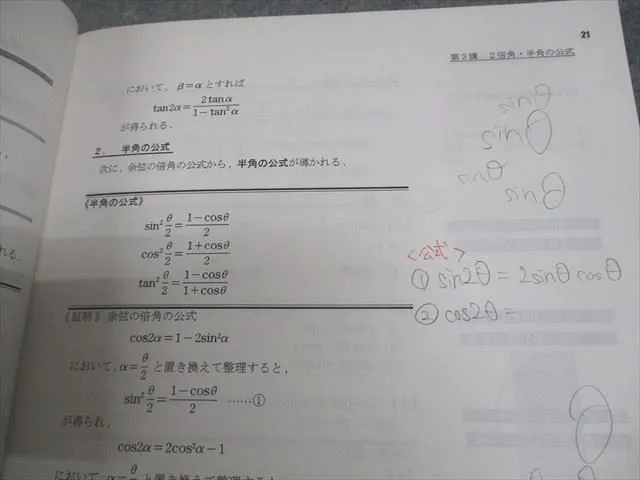 21
第3講 2倍角・半角の公式
において, β=αとすれば
tan2α=2tanα/1−tan²α
が得られる.
2. 半角の公式
次に, 余弦の倍角の公式から, 半角の公式が導かれる.
《半角の公式》
sin²θ/2=1−cosθ/2
cos²θ/2=1+cosθ/2
tan²θ/2=1−cosθ/1+cosθ
《証明》 余弦の倍角の公式
cos2α=1−2sin²α
において, α=θ/2 と置き換えて整理すると,
sin²θ/2=1−cosθ/2 ……①
が得られ,
cos2α=2cos²α−1
において, α=θ と置き換えて整理すると
sinθ
sinθ
sinθ
sinθ
<公式>
① sin2θ = 2sinθ cosθ
② cos2θ =
θ